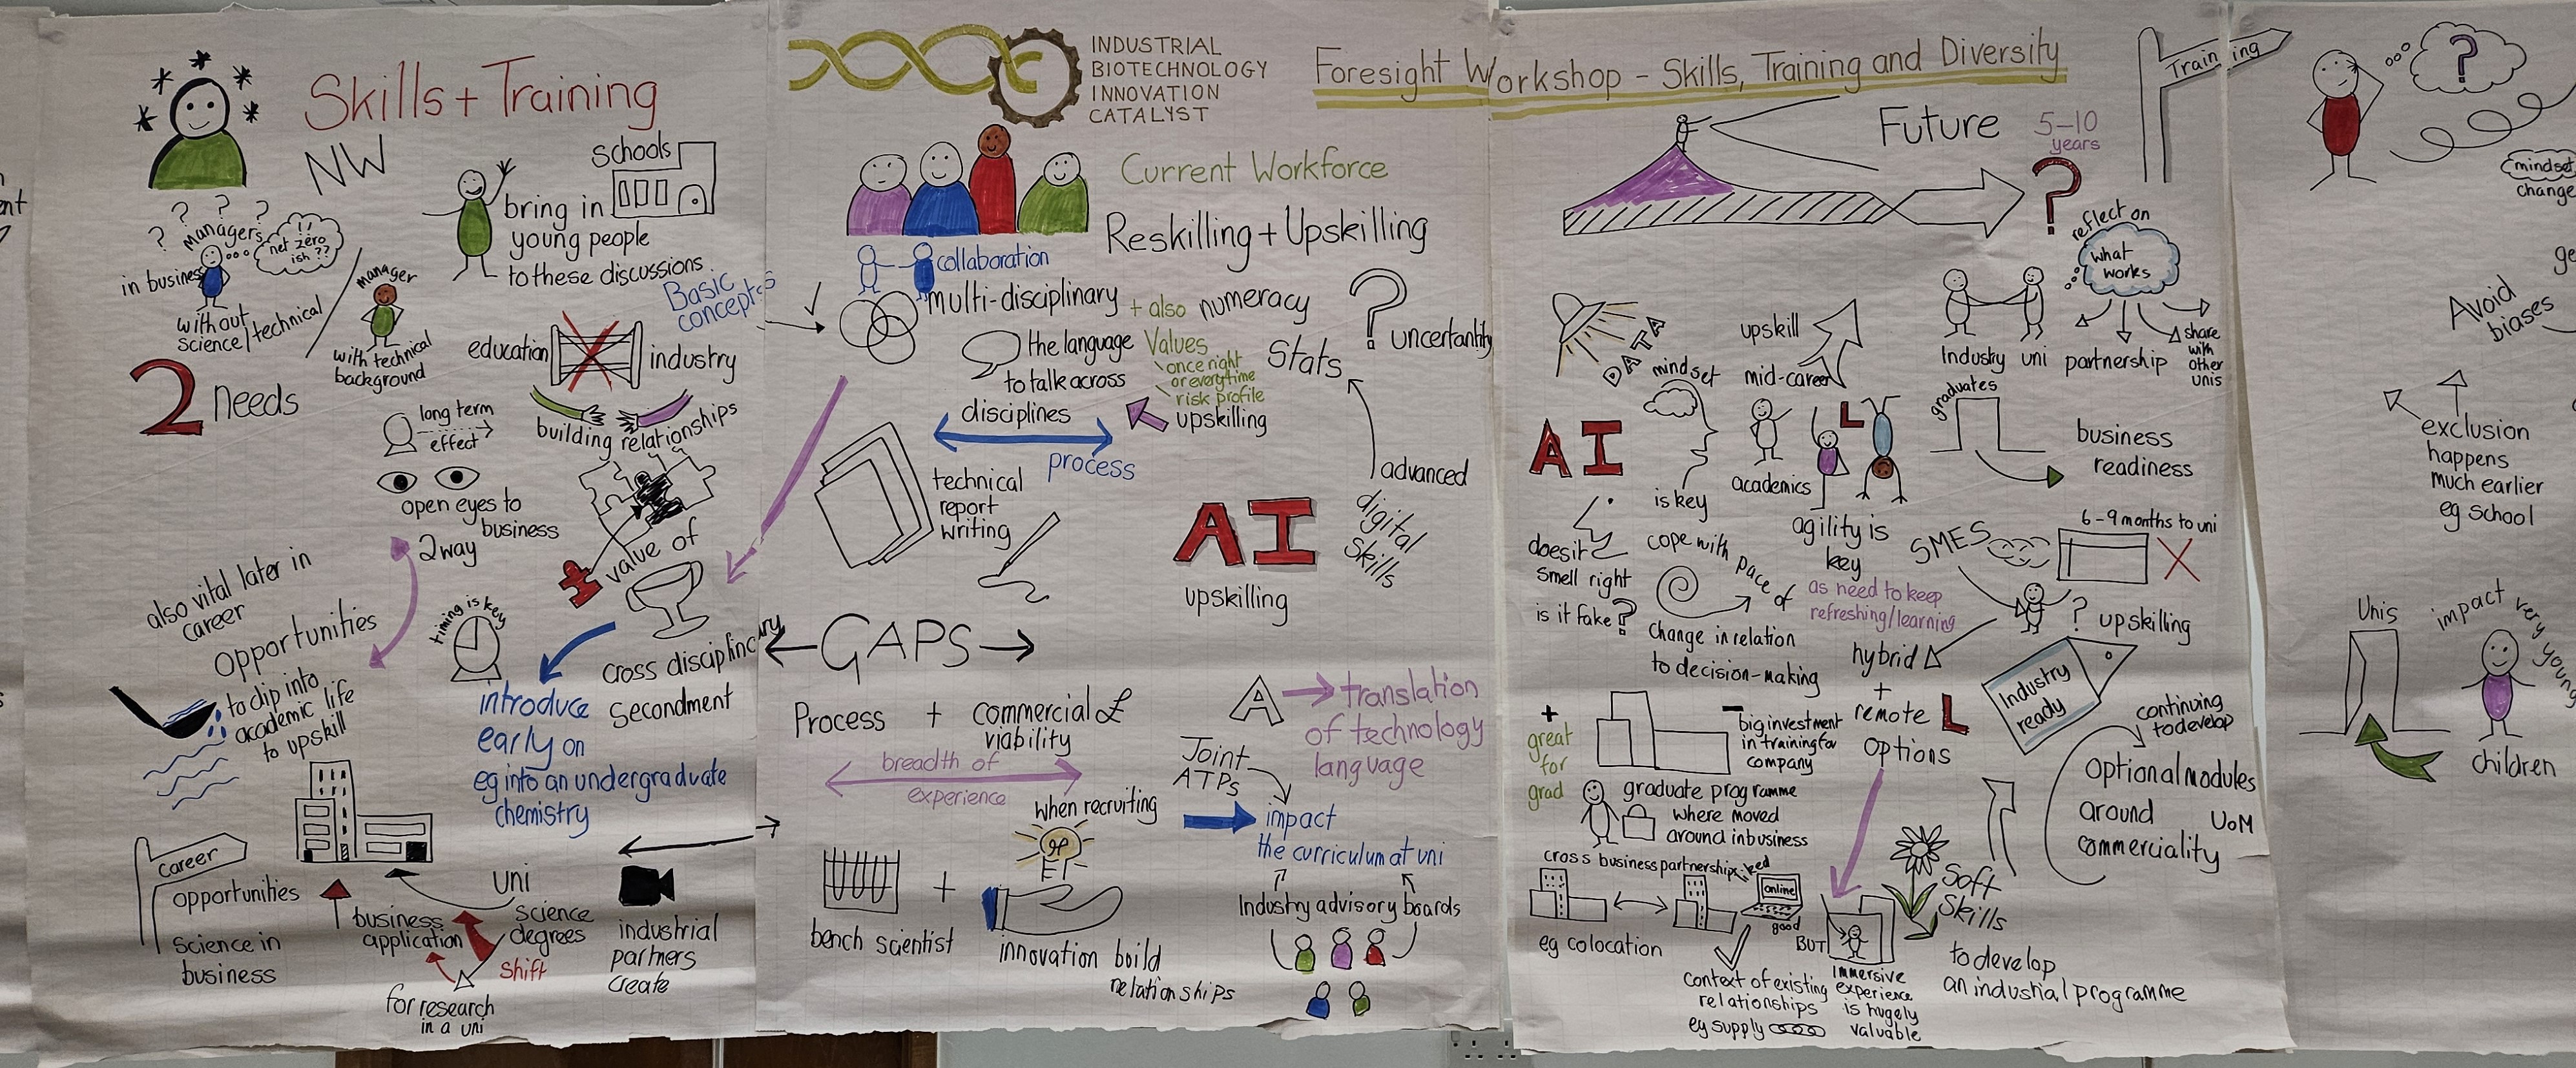 Skills + Training
NW
schools
bring in
young people
to these discussions
? ? ?
?
managers
!!
net zero
ish ??
in business
without
science/technical
manager
with technical
background
2 needs
Basic
concepts
education
industry
building relationships
long term
effect
open eyes to
business
2 way
value of
cross disciplinary
secondment
also vital later in
career
opportunities
to dip into
academic life
to upskill
timing is key
introduce
early on
eg into an undergraduate
chemistry
career
opportunities
science in
business
uni
science
degrees
business
application
shift
for research
in a uni
industrial
partners
create
INDUSTRIAL
BIOTECHNOLOGY
INNOVATION
CATALYST
Foresight Workshop - Skills, Training and Diversity
Current Workforce
Reskilling + Upskilling
collaboration
multi-disciplinary
+ also numeracy
?
uncertantity
the language
to talk across
disciplines
Values
once right
or everytime
risk profile
Stats
upskilling
process
technical
report
writing
AI
upskilling
advanced
digital
skills
GAPS
Process + commercial £
viability
breadth of
experience
when recruiting
A
translation
of technology
language
Joint
ATPs
impact
the curriculum at uni
Industry advisory boards
bench scientist
+
innovation build
relationships
Training
Future
5-10
years
?
reflect on
what
works
share
with
other
unis
Industry uni partnership
DATA
upskill
mid-career
mindset
is key
AI
academics
L
agility is
key
as need to keep
refreshing/learning
graduates
business
readiness
does it
smell right
is it fake?
cope with pace of
change in relation
to decision-making
SMES
6-9 months to uni
? upskilling
hybrid
+
remote
options
L
Industry
ready
continuing
to develop
optional modules
around
commerciality
UoM
+
great
for
grad
-
big investment
in training for
company
graduate programme
where moved
around in business
cross business partnerships
eg colocation
online
good
BUT
context of existing
relationships
eg supply
immersive
experience
is hugely
valuable
Soft
Skills
to develop
an industrial programme
?
mindset
change
Avoid
biases
exclusion
happens
much earlier
eg school
Unis
impact very young
children